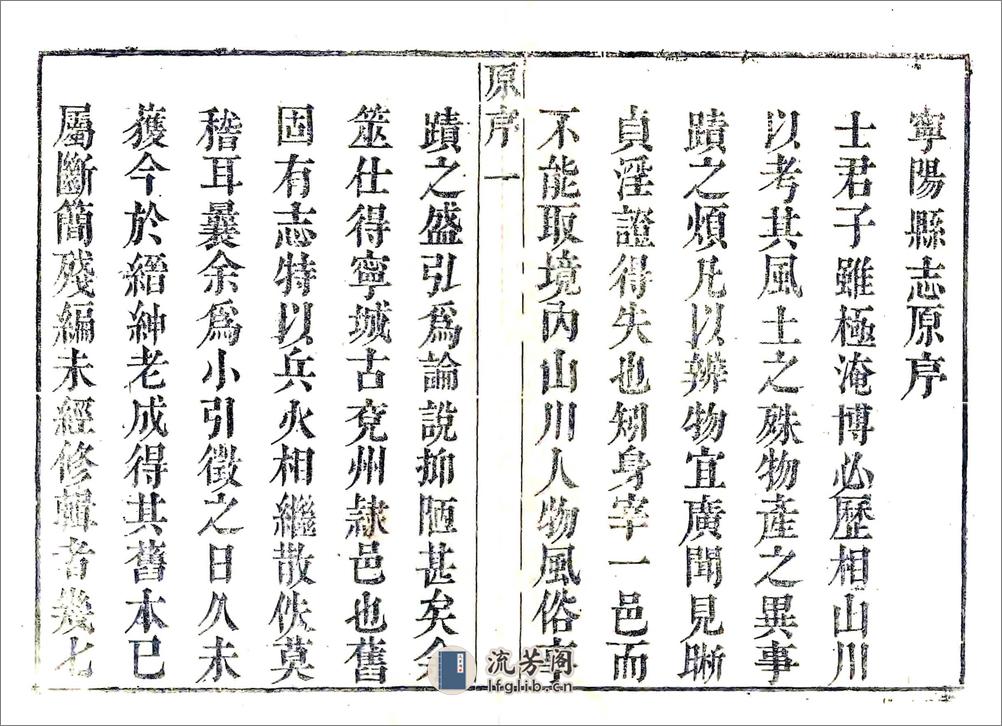 寧陽縣志原序
士君子雖極淹博必歷相山川
以考其風土之殊物產之異事
蹟之煩凡以辨物宜廣聞見晰
貞淫證得失也矧身宰一邑而
不能取境內山川人物風俗事
原序 一
蹟之盛引為論說抑陋甚矣余
筮仕得寧城古兗州隷邑也舊
固有志特以兵火相繼散佚莫
稽耳曩余為小引徵之日久未
獲今於縉紳老成得其舊本已
屬斷簡殘編未經修輯者幾七
流芳阁
lfglib.cn